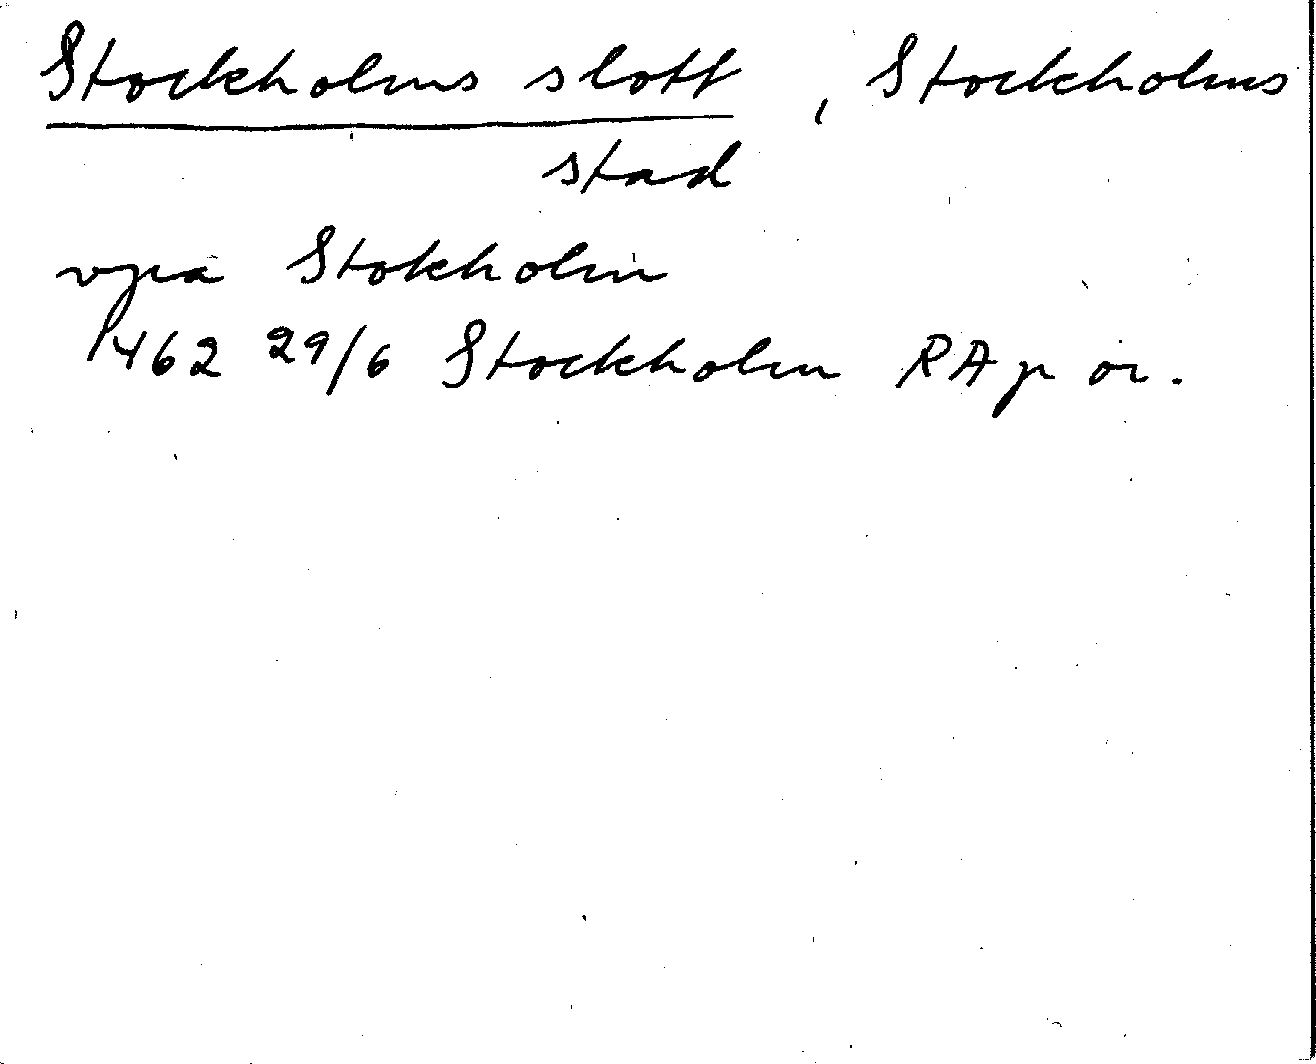 Stockholms slott, Stockholms
stad
vpa Stokholm
1462 29/6 Stockholm RAp or.